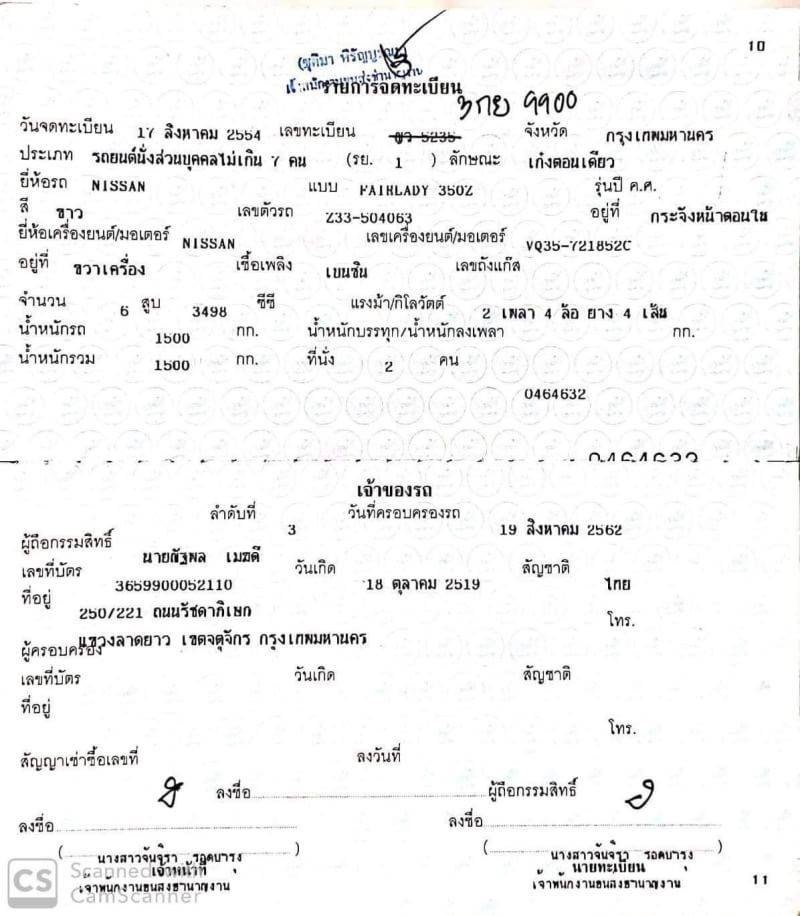 10
รายการจดทะเบียน
3กย 9900
วันจดทะเบียน 17 สิงหาคม 2554 เลขทะเบียน 5235 จังหวัด กรุงเทพมหานคร
ประเภท รถยนต์นั่งส่วนบุคคลไม่เกิน 7 คน (รย. 1 ) ลักษณะ เก๋งตอนเดียว
ยี่ห้อรถ NISSAN แบบ FAIRLADY 350Z รุ่นปี ค.ศ.
สี ขาว เลขตัวรถ Z33-504063 อยู่ที่ กระจังหน้าตอนใน
ยี่ห้อเครื่องยนต์/มอเตอร์ NISSAN เลขเครื่องยนต์/มอเตอร์ VQ35-721852C
อยู่ที่ ขวาเครื่อง เชื้อเพลิง เบนซิน เลขถังแก๊ส
จำนวน 6 สูบ 3498 ซีซี แรงม้า/กิโลวัตต์ 2 เพลา 4 ล้อ ยาง 4 เส้น
น้ำหนักรถ 1500 กก. น้ำหนักบรรทุก/น้ำหนักลงเพลา กก.
น้ำหนักรวม 1500 กก. ที่นั่ง 2 คน
0464632
0464632
เจ้าของรถ
ลำดับที่ 3 วันที่ครอบครองรถ 19 สิงหาคม 2562
ผู้ถือกรรมสิทธิ์ นายณัฐพล เมฆดี
เลขที่บัตร 3659900052110 วันเกิด 18 ตุลาคม 2519 สัญชาติ ไทย
ที่อยู่ 250/221 ถนนรัชดาภิเษก โทร.
แขวงลาดยาว เขตจตุจักร กรุงเทพมหานคร
ผู้ครอบครอง
เลขที่บัตร วันเกิด สัญชาติ
ที่อยู่
โทร.
สัญญาเช่าซื้อเลขที่ ลงวันที่
ลงชื่อ ผู้ถือกรรมสิทธิ์
ลงชื่อ ลงชื่อ
( นางสาวจันจิรา รอดบำรุง ) ( นางสาวจันจิรา รอดบำรุง )
เจ้าหน้าที่ นายทะเบียน
เจ้าพนักงานขนส่งชำนาญงาน เจ้าพนักงานขนส่งชำนาญงาน
11
CS Scanned with
CamScanner